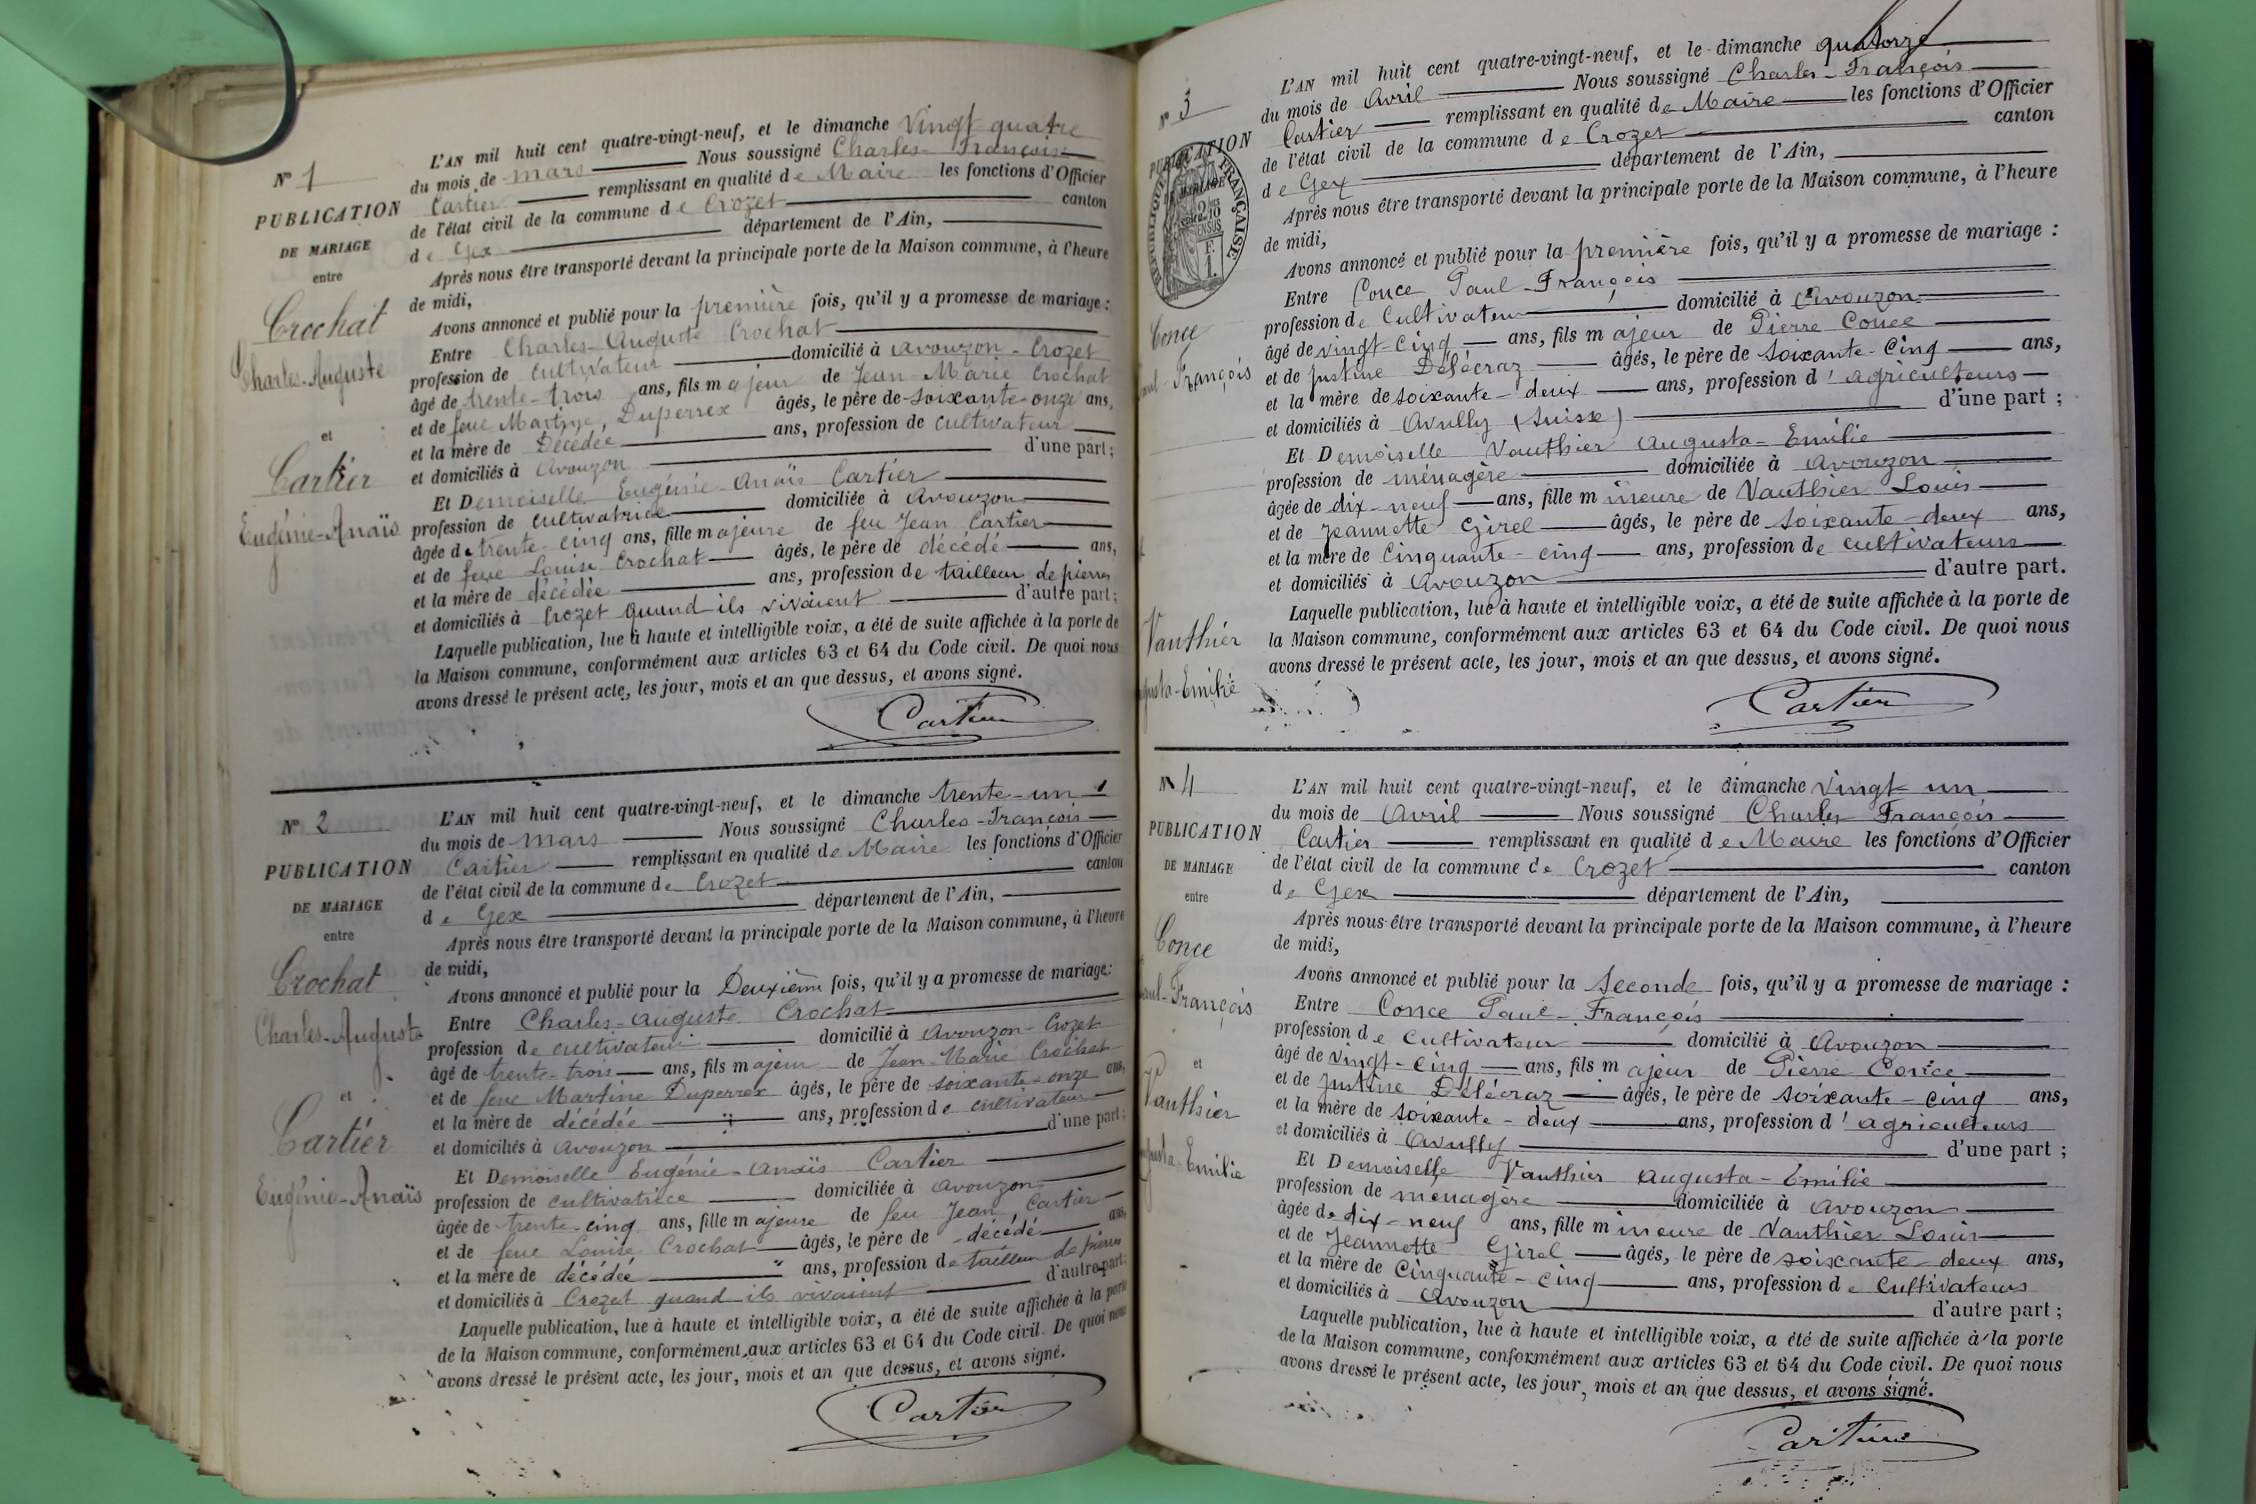 N° 1
PUBLICATION
DE MARIAGE
entre
Crochat
Charles-Auguste
et
Cartier
Eugénie-Anaïs
L'AN mil huit cent quatre-vingt-neuf, et le dimanche vingt quatre
du mois de mars Nous soussigné Charles-François
Cartier remplissant en qualité de Maire les fonctions d'Officier
de l'état civil de la commune de Crozet canton
de Gex département de l'Ain,
Après nous être transporté devant la principale porte de la Maison commune, à l'heure
de midi,
Avons annoncé et publié pour la première fois, qu'il y a promesse de mariage :
Entre Charles-Auguste Crochat
profession de cultivateur domicilié à Avouzon-Crozet
âgé de trente-trois ans, fils majeur de Jean-Marie Crochat
et de feue Martine Duperrex âgés, le père de soixante-onze ans,
et la mère de Décédée ans, profession de cultivateur
et domiciliés à Avouzon d'une part ;
Et Demoiselle Eugénie-Anaïs Cartier
profession de cultivatrice domiciliée à Avouzon
âgée de trente-cinq ans, fille majeure de feu Jean Cartier
et de feue Louise Crochat âgés, le père de décédé ans,
et la mère de décédée ans, profession de tailleur de pierres
et domiciliés à Crozet quand ils vivaient d'autre part ;
Laquelle publication, lue à haute et intelligible voix, a été de suite affichée à la porte de
la Maison commune, conformément aux articles 63 et 64 du Code civil. De quoi nous
avons dressé le présent acte, les jour, mois et an que dessus, et avons signé.
Cartier
N° 2
PUBLICATION
DE MARIAGE
entre
Crochat
Charles-Auguste
et
Cartier
Eugénie-Anaïs
L'AN mil huit cent quatre-vingt-neuf, et le dimanche trente-un
du mois de mars Nous soussigné Charles-François
Cartier remplissant en qualité de Maire les fonctions d'Officier
de l'état civil de la commune de Crozet canton
de Gex département de l'Ain,
Après nous être transporté devant la principale porte de la Maison commune, à l'heure
de midi,
Avons annoncé et publié pour la Deuxième fois, qu'il y a promesse de mariage :
Entre Charles-Auguste Crochat
profession de cultivateur domicilié à Avouzon-Crozet
âgé de trente-trois ans, fils majeur de Jean-Marie Crochat
et de feue Martine Duperrex âgés, le père de soixante-onze ans,
et la mère de décédée ans, profession de cultivateur
et domiciliés à Avouzon d'une part ;
Et Demoiselle Eugénie-Anaïs Cartier
profession de cultivatrice domiciliée à Avouzon
âgée de trente-cinq ans, fille majeure de feu Jean Cartier
et de feue Louise Crochat âgés, le père de décédé ans,
et la mère de décédée ans, profession de tailleur de pierres
et domiciliés à Crozet quand ils vivaient d'autre part ;
Laquelle publication, lue à haute et intelligible voix, a été de suite affichée à la porte
de la Maison commune, conformément aux articles 63 et 64 du Code civil. De quoi nous
avons dressé le présent acte, les jour, mois et an que dessus, et avons signé.
Cartier
N° 3
PUBLICATION
DE MARIAGE
RÉPUBLIQUE FRANÇAISE
Conce
François
Vauthier
Emilie
L'AN mil huit cent quatre-vingt-neuf, et le dimanche quatorze
du mois de Avril Nous soussigné Charles-François
Cartier remplissant en qualité de Maire les fonctions d'Officier
de l'état civil de la commune de Crozet canton
de Gex département de l'Ain,
Après nous être transporté devant la principale porte de la Maison commune, à l'heure
de midi,
Avons annoncé et publié pour la première fois, qu'il y a promesse de mariage :
Entre Conce Paul-François
profession de Cultivateur domicilié à Avouzon
âgé de vingt-cinq ans, fils majeur de Pierre Conce
et de Justine Délécraz âgés, le père de soixante-cinq ans,
et la mère de soixante-deux ans, profession d'agriculteurs
et domiciliés à Avully (Suisse) d'une part ;
Et Demoiselle Vauthier Augusta-Emilie
profession de ménagère domiciliée à Avouzon
âgée de dix-neuf ans, fille mineure de Vauthier Louis
et de Jeannette Girel âgés, le père de soixante-deux ans,
et la mère de Cinquante-cinq ans, profession de cultivateurs
et domiciliés à Avouzon d'autre part.
Laquelle publication, lue à haute et intelligible voix, a été de suite affichée à la porte de
la Maison commune, conformément aux articles 63 et 64 du Code civil. De quoi nous
avons dressé le présent acte, les jour, mois et an que dessus, et avons signé.
Cartier
N° 4
PUBLICATION
DE MARIAGE
entre
Conce
François
et
Vauthier
Emilie
L'AN mil huit cent quatre-vingt-neuf, et le dimanche vingt-un
du mois de Avril Nous soussigné Charles François
Cartier remplissant en qualité de Maire les fonctions d'Officier
de l'état civil de la commune de Crozet canton
de Gex département de l'Ain,
Après nous être transporté devant la principale porte de la Maison commune, à l'heure
de midi,
Avons annoncé et publié pour la Seconde fois, qu'il y a promesse de mariage :
Entre Conce Paul-François
profession de Cultivateur domicilié à Avouzon
âgé de vingt-cinq ans, fils majeur de Pierre Conce
et de Justine Délécraz âgés, le père de soixante-cinq ans,
et la mère de soixante-deux ans, profession d'agriculteurs
et domiciliés à Avully d'une part ;
Et Demoiselle Vauthier Augusta-Emilie
profession de ménagère domiciliée à Avouzon
âgée de dix-neuf ans, fille mineure de Vauthier Louis
et de Jeannette Girel âgés, le père de soixante-deux ans,
et la mère de Cinquante-cinq ans, profession de Cultivateurs
et domiciliés à Avouzon d'autre part ;
Laquelle publication, lue à haute et intelligible voix, a été de suite affichée à la porte
de la Maison commune, conformément aux articles 63 et 64 du Code civil. De quoi nous
avons dressé le présent acte, les jour, mois et an que dessus, et avons signé.
Cartier